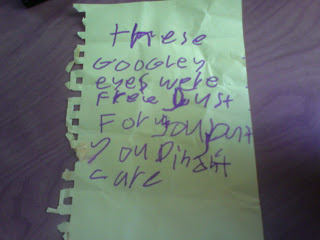 these
GOOGLEY
eyes were
Free Just
For you but
you Dindnt
care